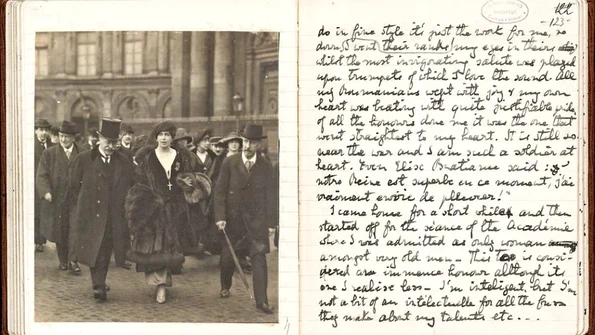 -123-
do in fine style it's just the work for me, so
down I went their ranks my eyes in theirs
whilst the most invigorating salute was played
upon trumpets of which I love the sound. All
my Roumanians wept with joy & my own
heart was beating with quite justifiable pride
of all the honours done me it was the one that
went straightest to my heart. It is still so
near the war and I am such a soldier at
heart. Even Elise Bratianu said: "
notre Reine est superbe en ce moment, j'ai
vraiment envie de pleurer!"
I came home for a short while and then
started off for the séance of the Academie
where I was admitted as only woman
amongst very old men – This is consi-
dered an immence honour although it is
one I realise less – I'm inteligent, but I'm
not a bit of an intelectuelle for all the fuss
they make about my talents etc. – – –